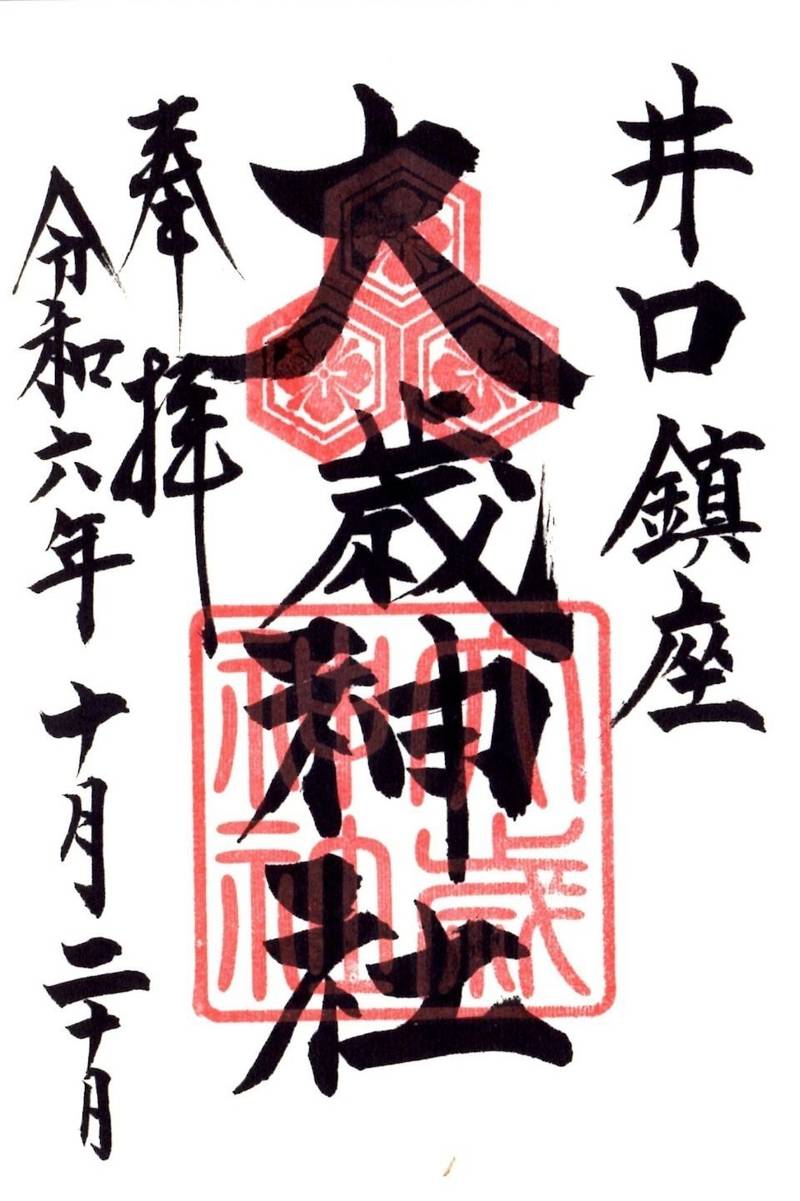 井口鎮座
大歳神社
大歳
神社
奉拝
令和六年十月二十月